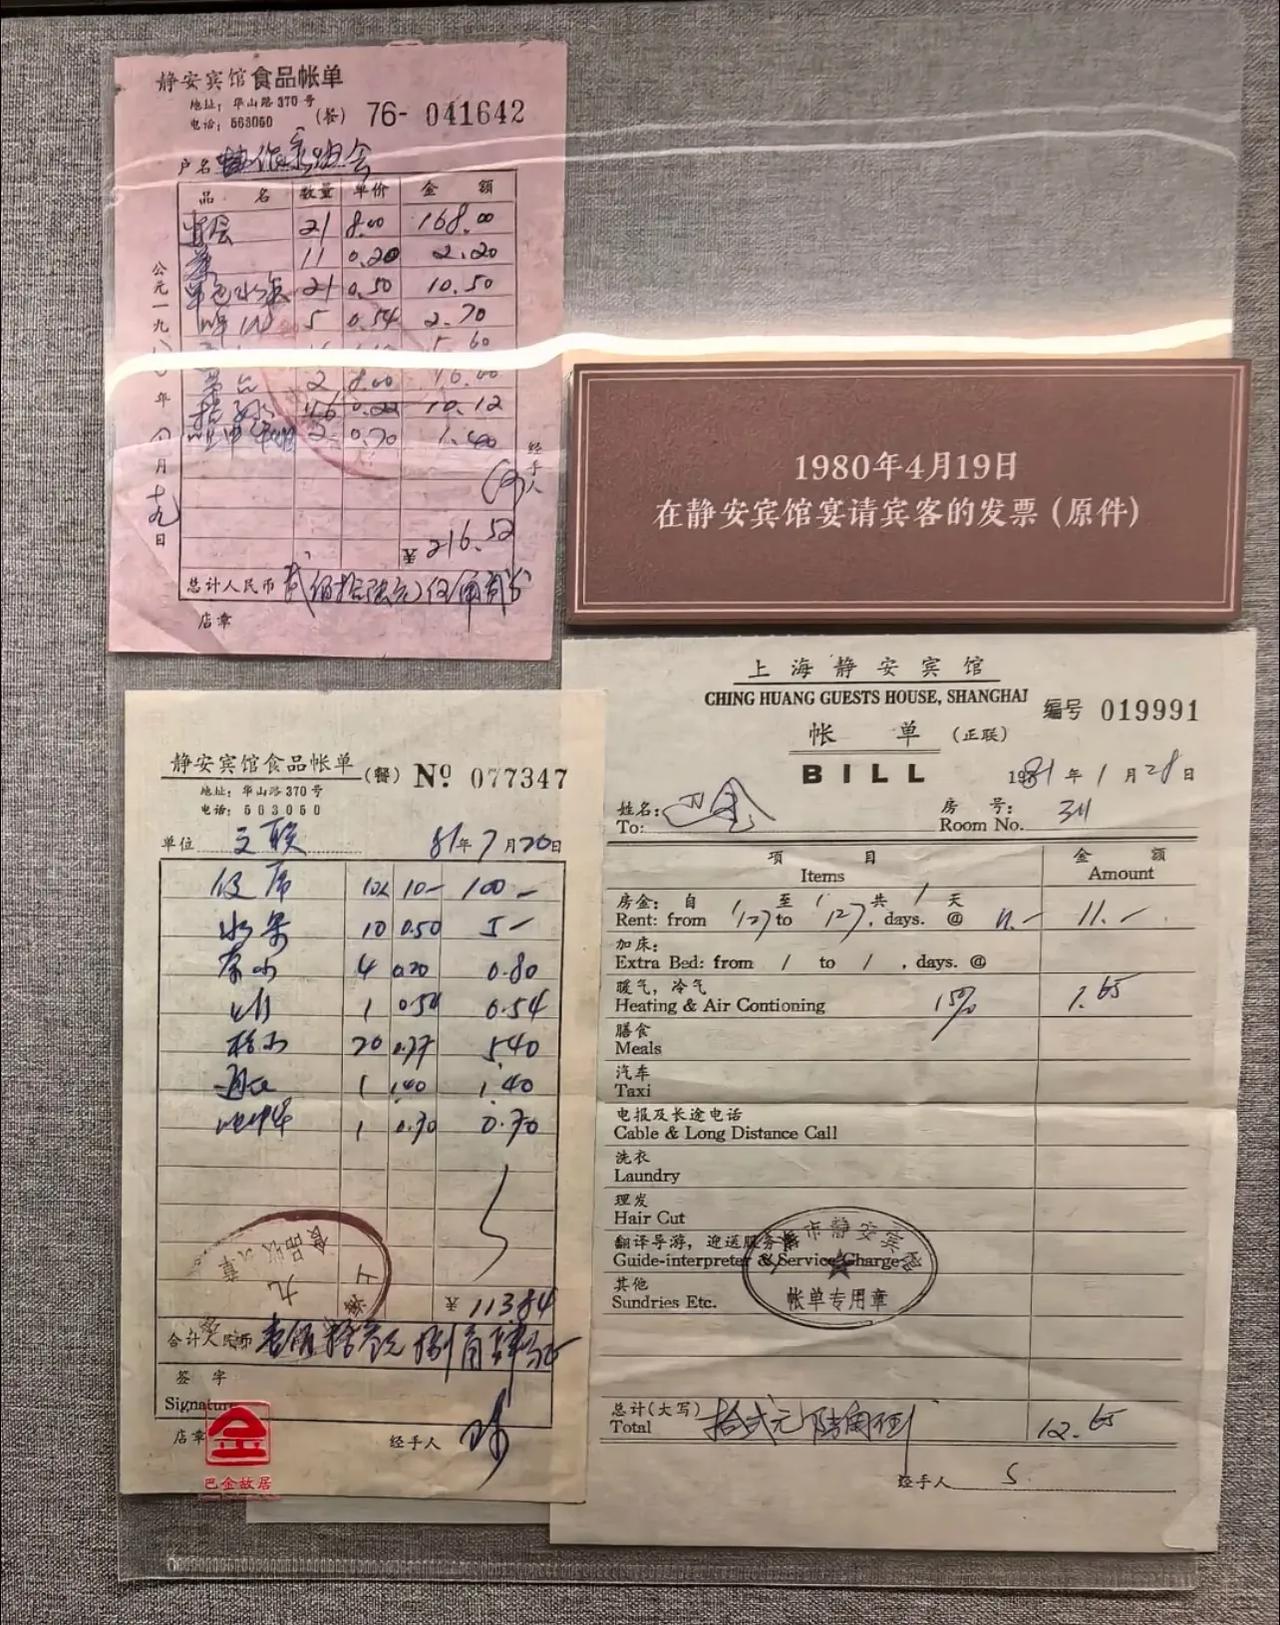 静安宾馆食品帐单
地址：华山路370号
电话：563060
（餐） 76- 041642
户名
品 名 数量 单价 金 额
宴会 21 8.00 168.00
茶 11 0.20 2.20
水果 21 0.50 10.50
啤 5 0.54 2.70
5.60
茅台 2 8.00 16.00
桔 46 0.22 10.12
2 0.70 1.40
公元一九八〇年 月十九日
经手人
¥216.52
总计人民币 贰佰拾陆元伍角贰分
店章
1980年4月19日
在静安宾馆宴请宾客的发票（原件）
静安宾馆食品帐单（餐） Nº 077347
地址：华山路370号
电话：563050
单位 文联 81年7月20日
酒席 10 10- 100-
水果 10 0.50 5-
茶水 4 0.20 0.80
1 0.54 0.54
桔水 20 0.27 5.40
1 1.40 1.40
1 0.70 0.70
¥ 113.84
合计人民币 壹佰拾叁元捌角肆分
签 字
Signature
店章
经手人
巴金故居
上海静安宾馆
CHING HUANG GUESTS HOUSE, SHANGHAI
编号 019991
帐 单 （正联）
BILL
1981年1月28日
姓名： 巴金
To:
房 号： 311
Room No.
项 目 金 额
Items Amount
房金：自 1 至 1 共 1 天
Rent: from 1/27 to 1/27, days. @ 11.- 11.-
加床：
Extra Bed: from / to / , days. @
暖气，冷气
Heating & Air Contioning 15% 1.65
膳食
Meals
汽车
Taxi
电报及长途电话
Cable & Long Distance Call
洗衣
Laundry
理发
Hair Cut
翻译导游，迎送服务
Guide-interpreter & Service Charge
其他
Sundries Etc.
上海市静安宾馆
帐单专用章
总计（大写） 拾贰元陆角伍分
Total 12.65
经手人